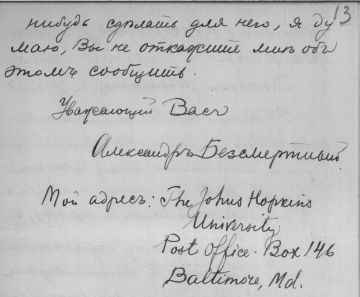 13
нибудь сдѣлать для него, я ду
маю, Вы не откажите мнѣ объ
этомъ сообщить.
Уважающій Васъ
Александръ Безсмертный.
Мой адресъ: The Johns Hopkins
University
Post Office. Box 146
Baltimore, Md.